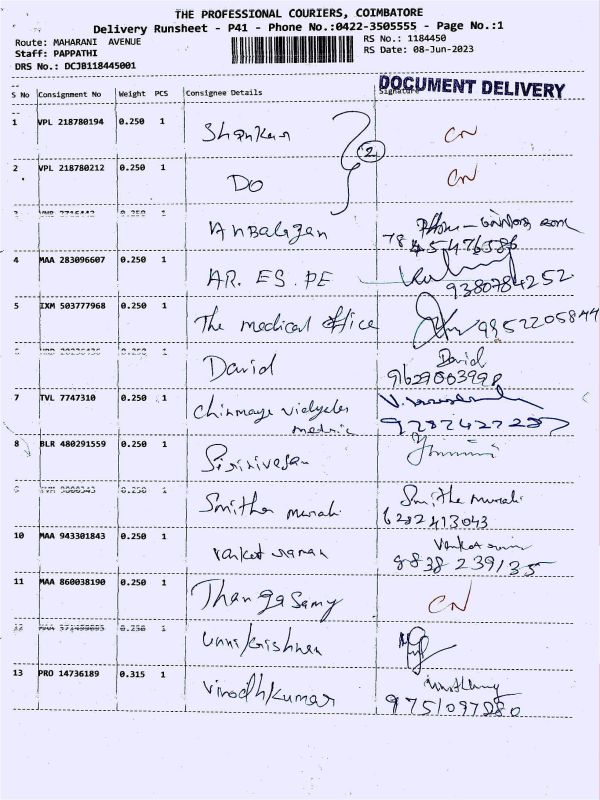 THE PROFESSIONAL COURIERS, COIMBATORE
Delivery Runsheet - P41 - Phone No.:0422-3505555 - Page No.:1
Route: MAHARANI AVENUE
RS No.: 1184450
Staff: PAPPATHI
RS Date: 08-Jun-2023
DRS No.: DCJB118445001
DOCUMENT DELIVERY
S No Consignment No Weight PCS Consignee Details Signature
1 VPL 218780194 0.250 1 Shankar CN
2
2 VPL 218780212 0.250 1 DO CN
3 0.250 1 Anbalagan
4 MAA 283096607 0.250 1 AR. ES. PE 9380784252
5 IXM 503777968 0.250 1 The medical office 9952205844
0.250 1 David David
9629003998
7 TVL 7747310 0.250 1 Chinmaya Vidyalaya
8 BLR 480291559 0.250 1
0.250 1 Smitha murali Smitha Murali
6282413043
10 MAA 943301843 0.250 1 Venket raman
8838239135
11 MAA 860038190 0.250 1 Thangasamy CN
12 0.250 1 Unnikrishnan
13 PRO 14736189 0.315 1 Vinodhkumar
9751097280